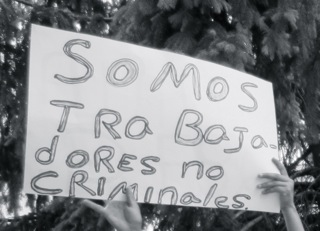 SOMOS
TRaBaJa-
dORES no
CRIMInales